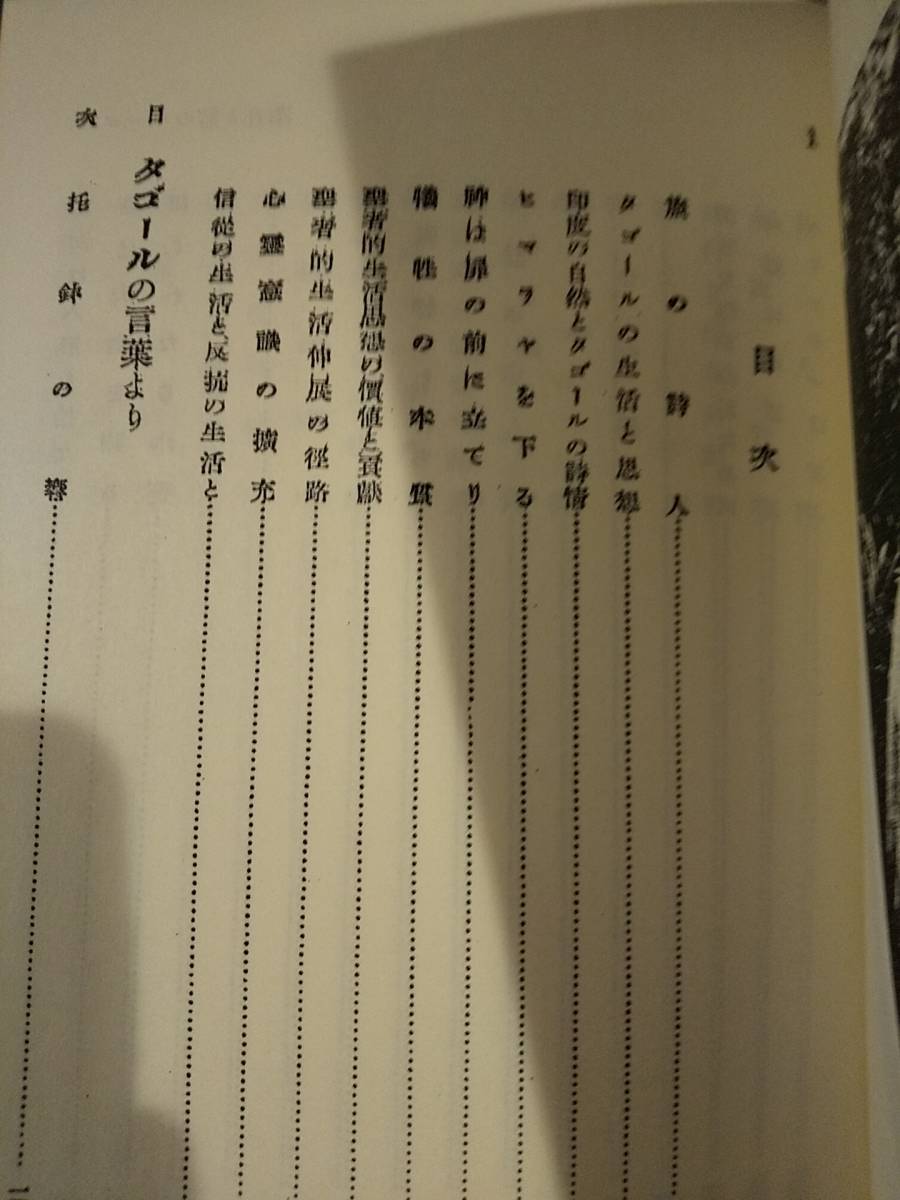 目次
旅の詩人
タゴールの生活と思想
印度の自然とタゴールの詩情
ヒマラヤを下る
神は扉の前に立てり
犠牲の本質
聖者的生活思想の價値と貢獻
聖者的生活伸展の徑路
心靈意識の擴充
信從の生活と、反抗の生活と
タゴールの言葉より
托鉢の響
一
目次